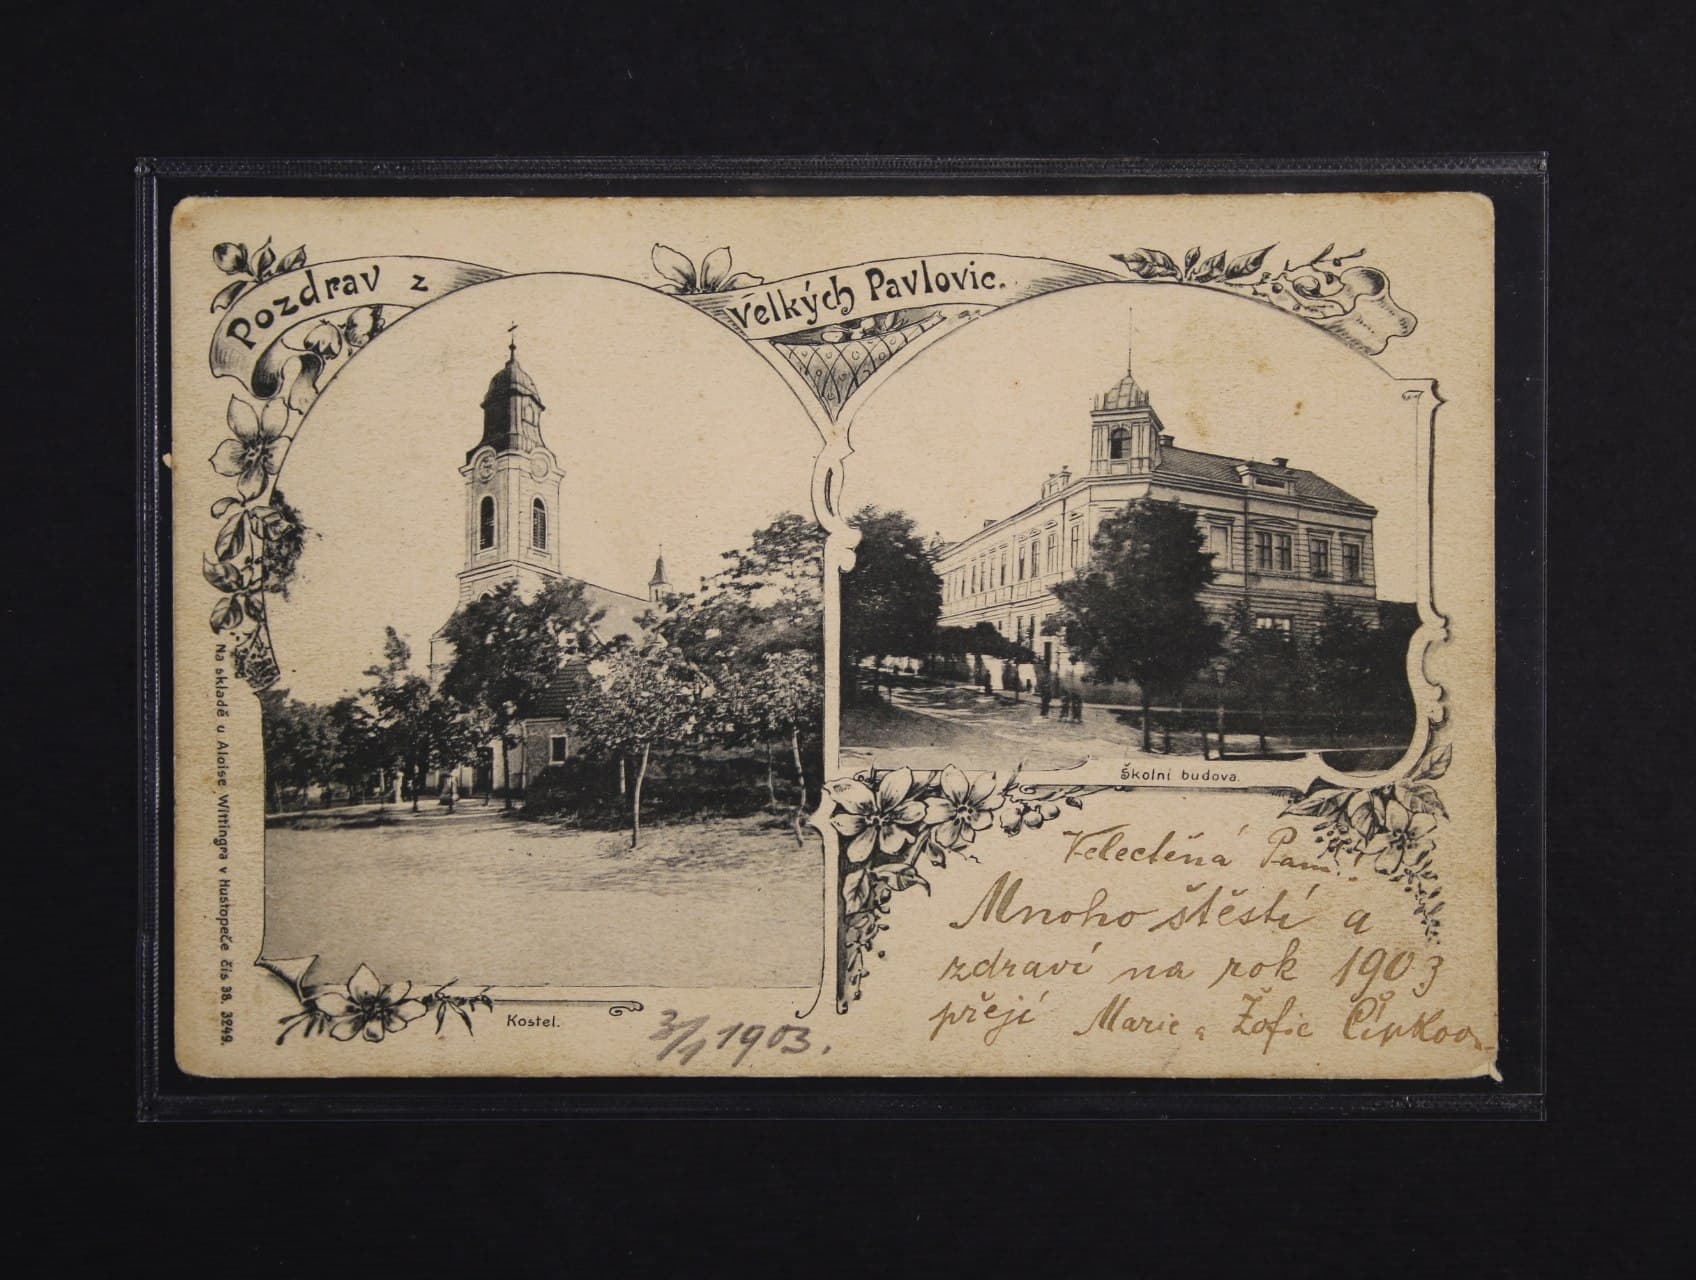 Pozdrav z Velkých Pavlovic.
Na skladě u Aloise Wittingra v Hustopeče čís 38. 3249.
Kostel.
Školní budova.
3/1 1903.
Velectěná Paní!
Mnoho štěstí a
zdraví na rok 1903
přejí Marie a Žofie